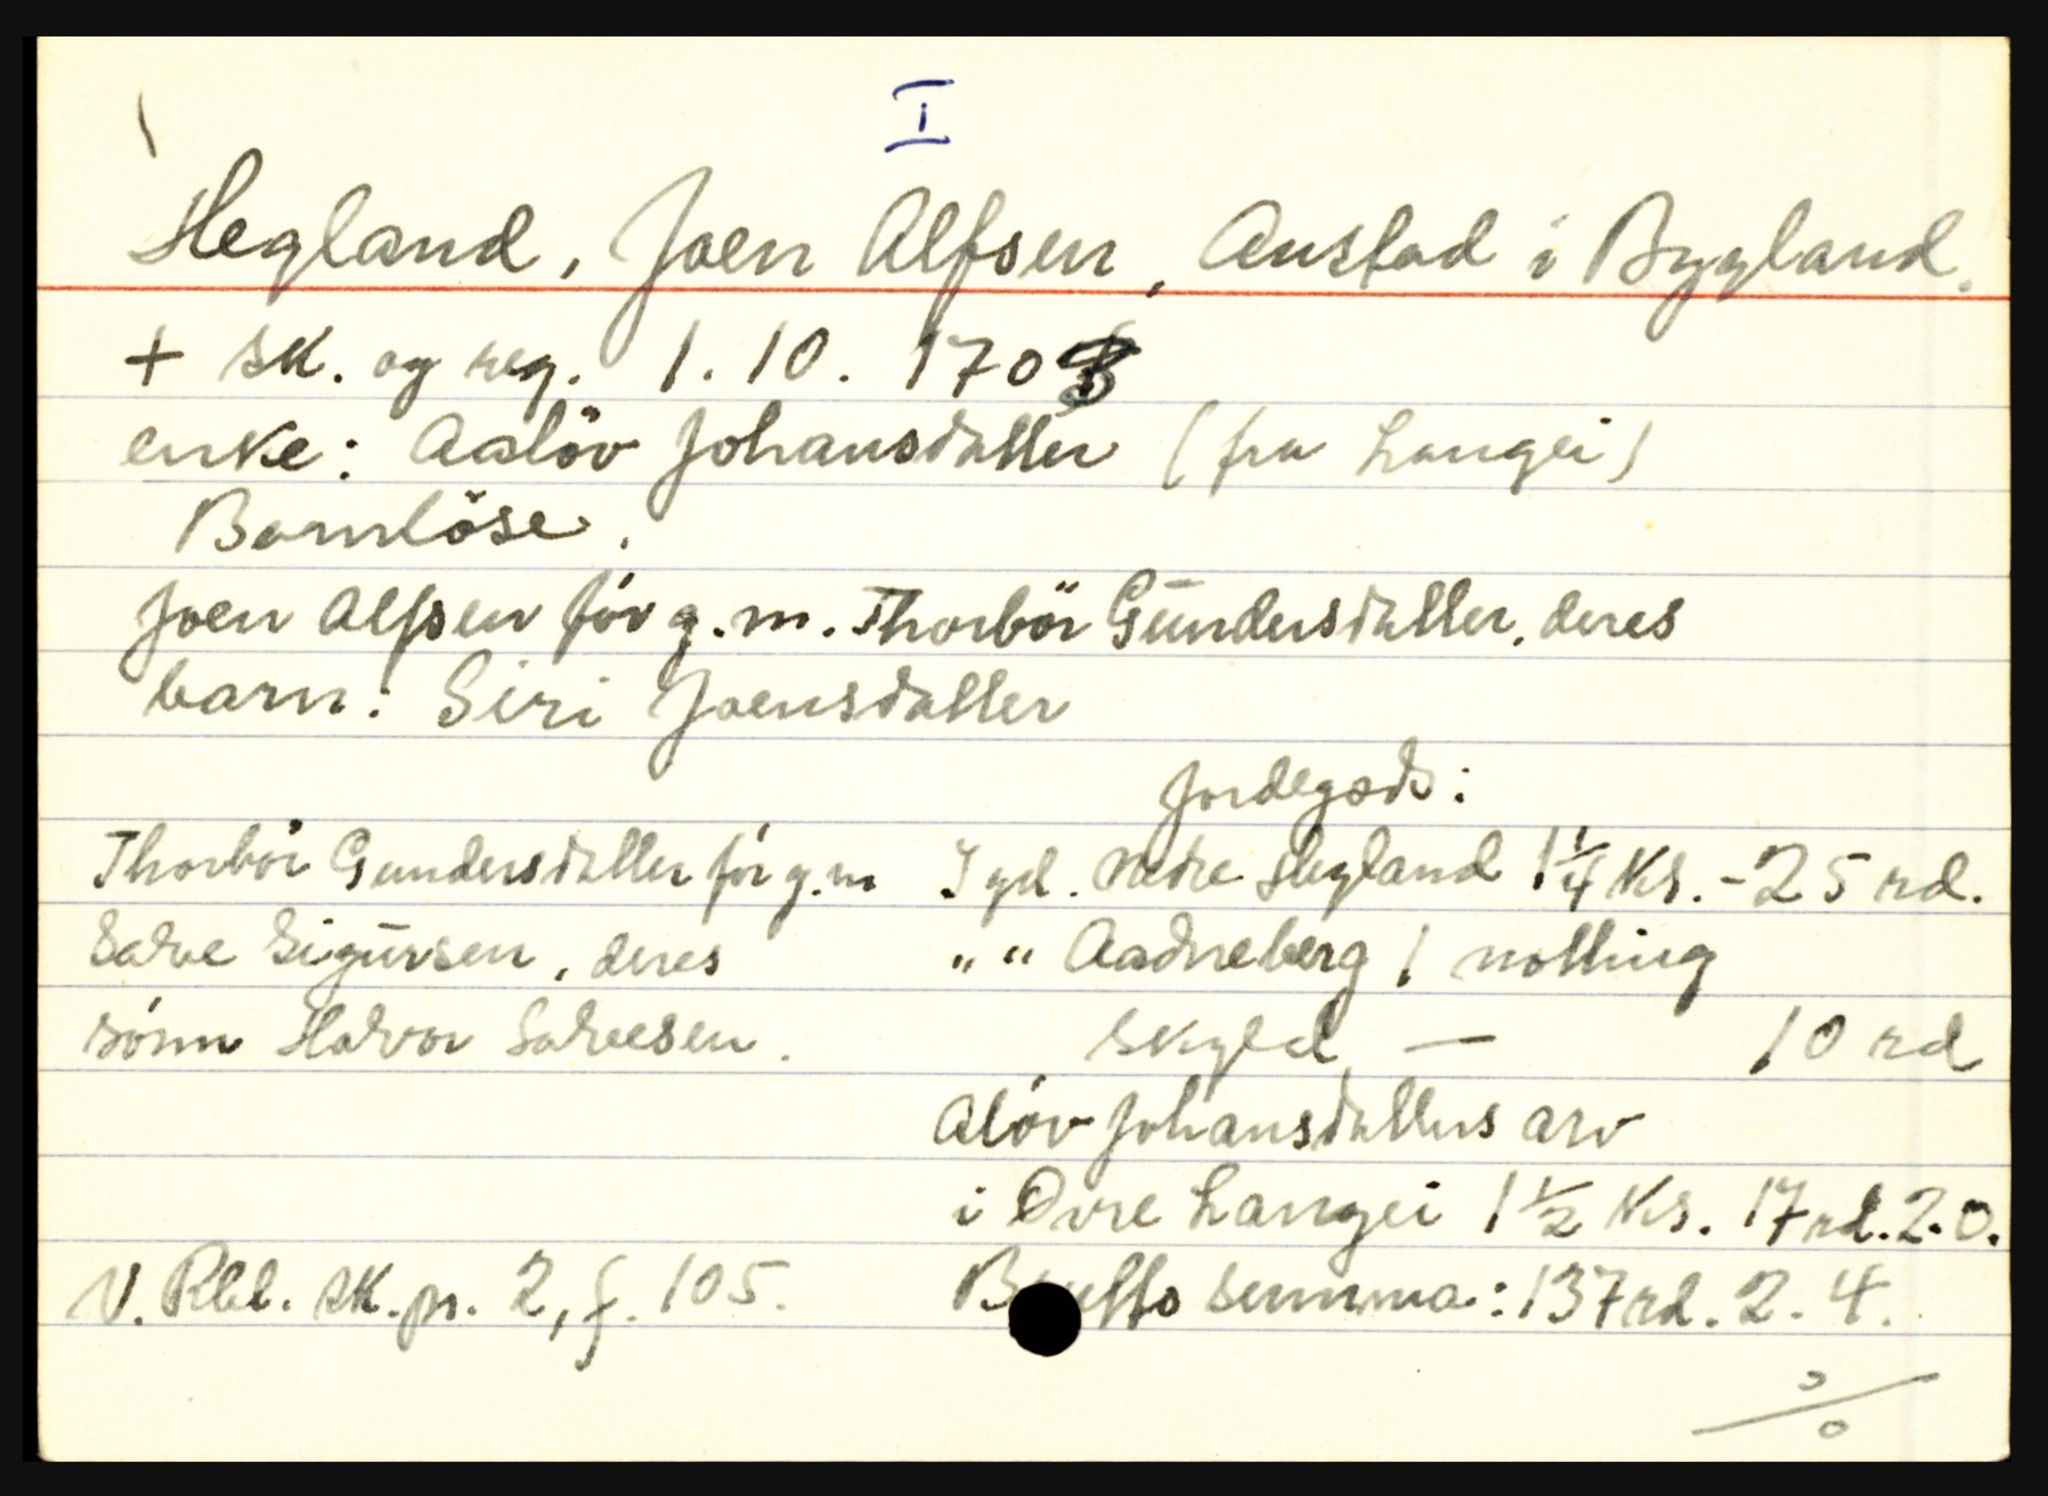 I
Hegland, Joen Alfsen, Austad i Bygland.
+ sk. og reg. 1.10. 1703
enke: Aslöv Johansdatter (fra Langei)
Barnlöse.
Joen Alfsen för g. m. Thorbör Gundersdatter, deres
barn: Siri Joensdatter
Thorbör Gundersdatter för g. m
Salve Sigursen, deres
sönn Halvor Salvesen.
N. Rbl. sk. pr. 2, f. 105.
Jordegods:
I gd. Nedre Hegland 1 1/4 Ks. - 25 rd.
" " Aadneberg 1 notting
skyld — 10 rd
Alöv Johansdatters arv
i Övre Langei 1 1/2 Ks. 17 rd. 2. 0.
Brutto summa: 137 rd. 2. 4.